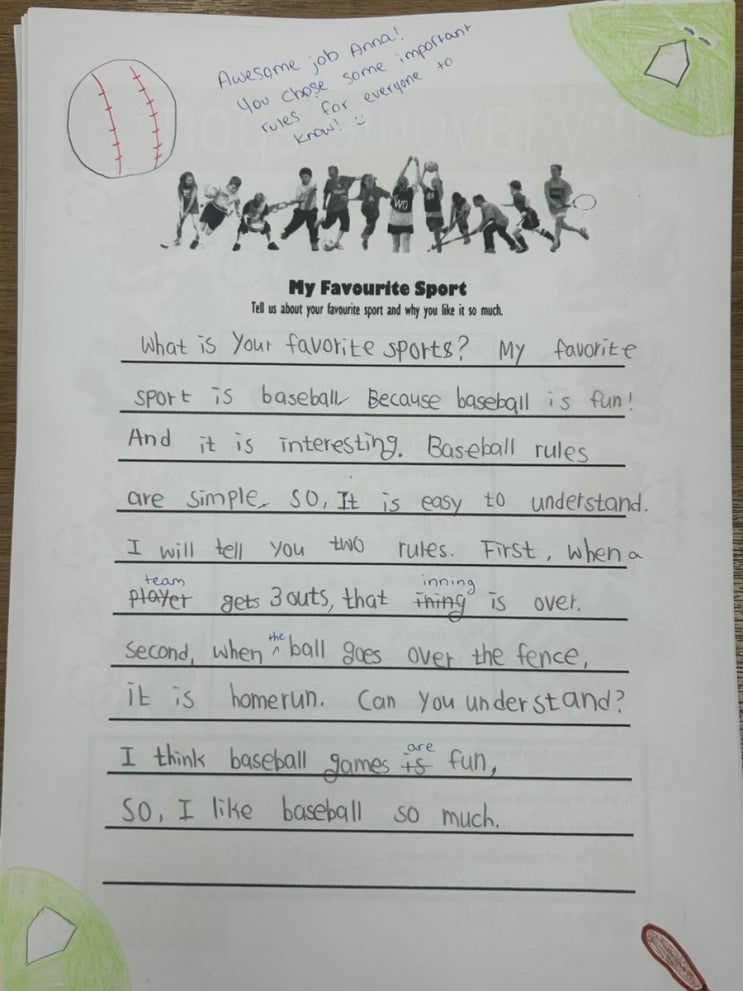 Awesome job Anna!
You chose some important
rules for everyone to
know! :)
WD
My Favourite Sport
Tell us about your favourite sport and why you like it so much.
What is your favorite sports? My favorite
sport is baseball Because baseball is fun!
And it is interesting. Baseball rules
are simple. So, It is easy to understand.
I will tell you two rules. First, when a
team inning
player gets 3 outs, that ining is over.
the
Second, when ^ ball goes over the fence,
it is homerun. Can you understand?
are
I think baseball games is fun,
So, I like baseball so much.